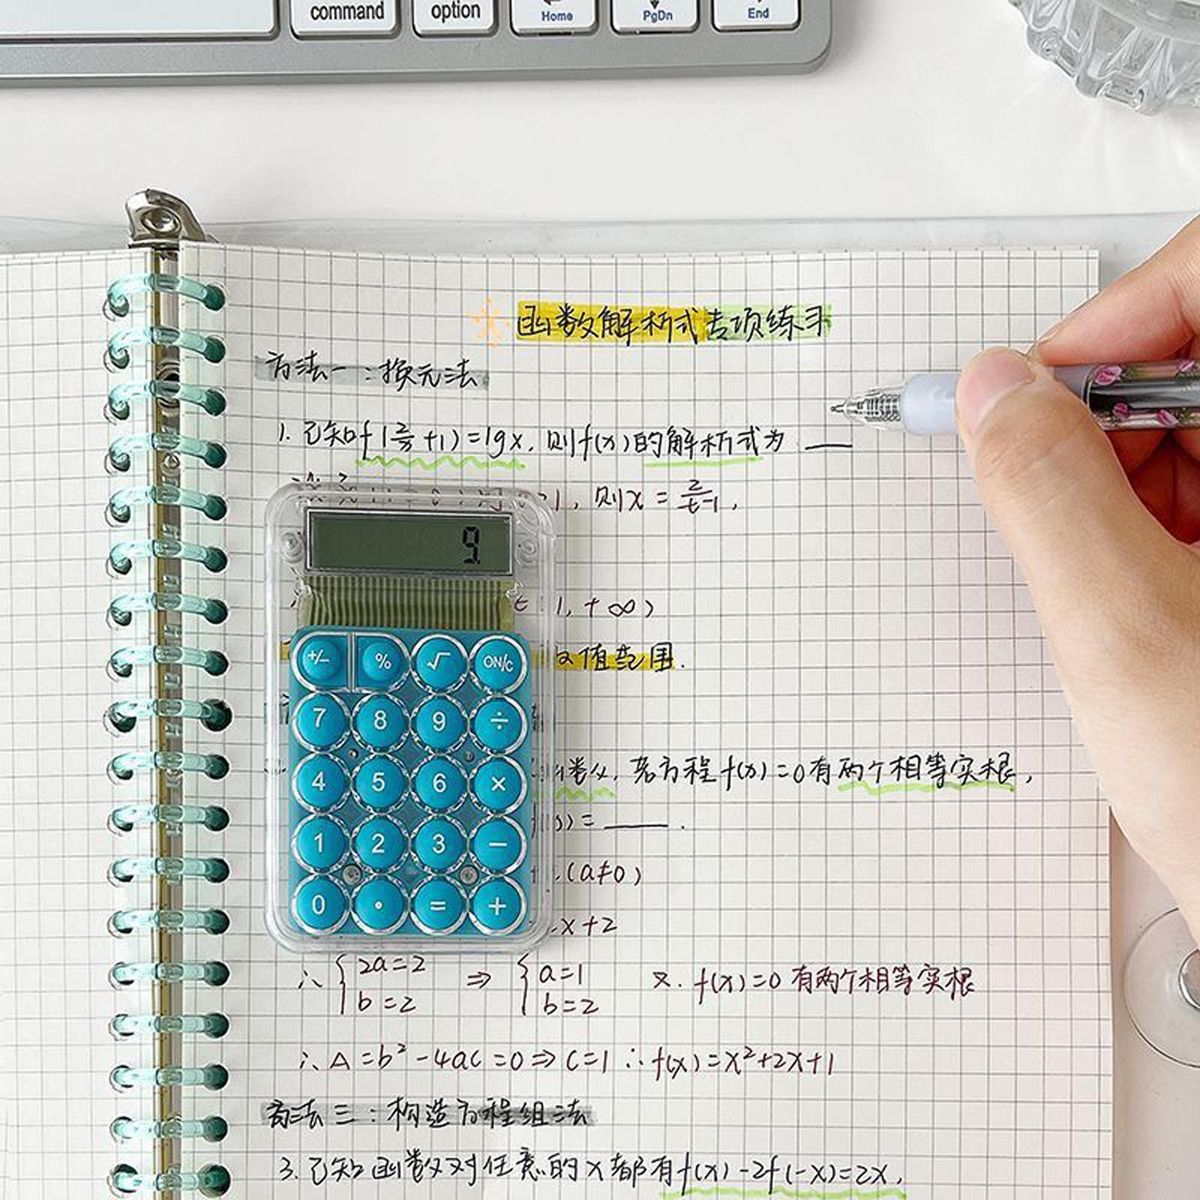 command option Home PgDn End
函数解析式专项练习
方法一:换元法
1. 已知f(2/x+1)=lgx, 则f(x)的解析式为 ___
>1, 则x = 2/t-1,
1, +∞)
值范围.
9.
+/- % √ ON/C
7 8 9 ÷
4 5 6 ×
1 2 3 −
0 · = +
若方程f(x)=0有两个相等实根,
)= ___ .
(a≠0)
x+2
∴ {2a=2 b=2 ⇒ {a=1 b=2 又. f(x)=0 有两个相等实根
∴ Δ=b²-4ac=0⇒c=1 ∴f(x)=x²+2x+1
方法三:构造方程组法
3. 已知函数对任意的x都有f(x)-2f(-x)=2x,